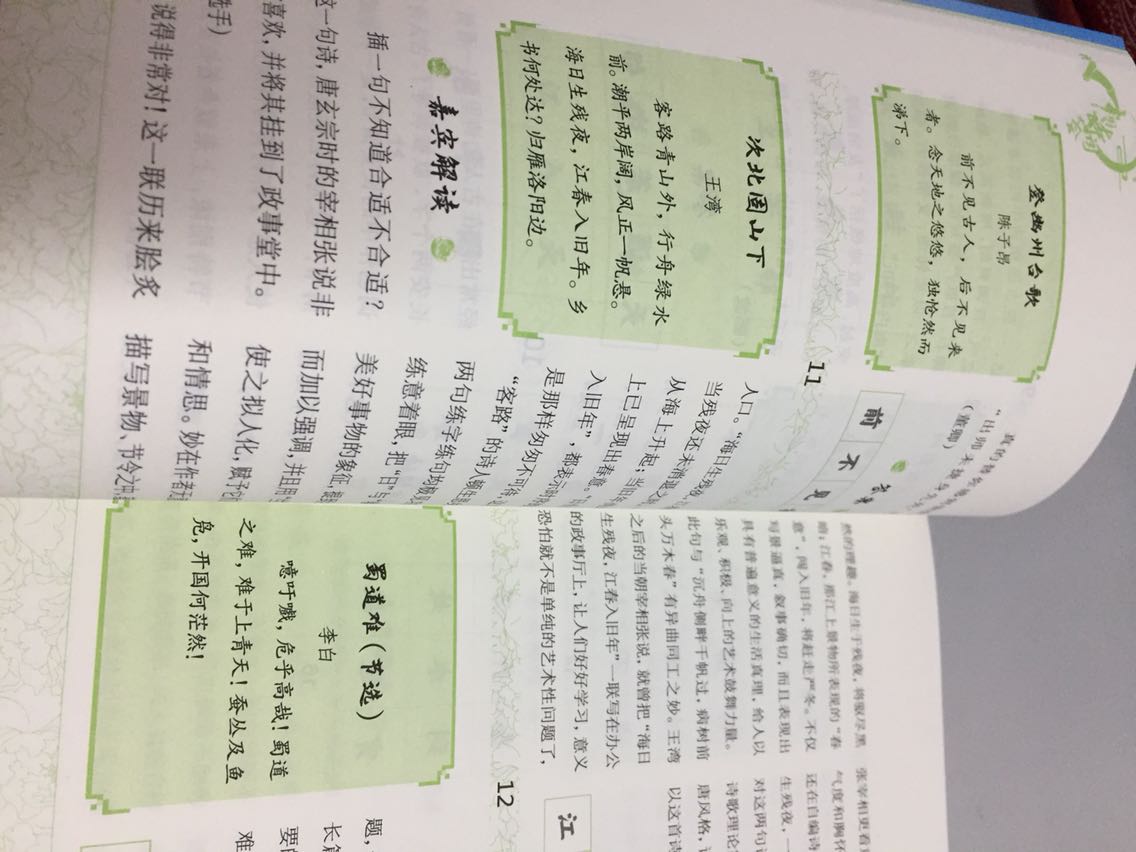 登幽州台歌
陈子昂
前不见古人，后不见来
者。念天地之悠悠，独怆然而
涕下。
11
次北固山下
王湾
客路青山外，行舟绿水
前。潮平两岸阔，风正一帆悬。
海日生残夜，江春入旧年。乡
书何处达？归雁洛阳边。
嘉宾解读
插一句不知道合适不合适？
这一句诗，唐玄宗时的宰相张说非
喜欢，并将其挂到了政事堂中。
选手）
说得非常对！这一联历来脍炙
前不见
人口。“海日生残夜
当残夜还未消退之
从海上升起；当旧年
上已呈现出春意。
入旧年”，都表示时
是那样匆匆不可待
“客路”的诗人顿生
两句练字练句均极见
练意着眼，把“日”与
美好事物的象征，
而加以强调，并且用
使之拟人化，赋予它
和情思。妙在作者无
描写景物、节令之中
然的理趣。海日生于残夜，将驱尽黑
暗；江春，那江上景物所表现的“春
意”，闯入旧年，将赶走严冬。不仅
写景逼真，叙事确切，而且表现出
具有普遍意义的生活真理，给人以
乐观、积极、向上的艺术鼓舞力量。
此句与“沉舟侧畔千帆过，病树前
头万木春”有异曲同工之妙。王湾
之后的当朝宰相张说，就曾把“海日
生残夜，江春入旧年”一联写在办公
的政事厅上，让人们好好学习，意义
恐怕就不是单纯的艺术性问题了，
张宰相更看
气度和胸怀
还在自编诗
生残夜，一
对这两句诗
诗歌理论
唐风格，
以这首诗
12
江
蜀道难（节选）
李白
噫吁嚱，危乎高哉！蜀道
之难，难于上青天！蚕丛及鱼
凫，开国何茫然！
题，
长篇
要
难